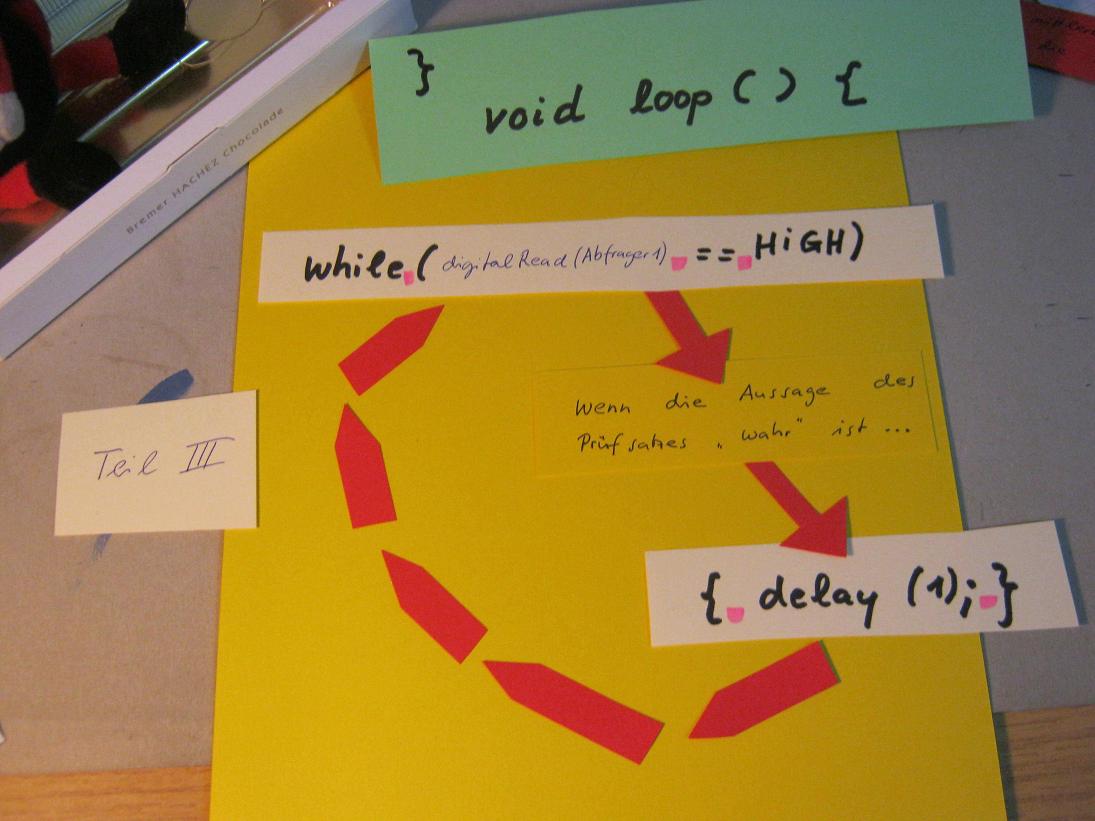 }
void loop () {
Bremer HACHEZ Chocolade
while ( digitalRead (Abfrager 1) == HiGH)
Wenn die Aussage des
Prüfsatzes „wahr“ ist ...
Teil III
{ delay (1); }
die